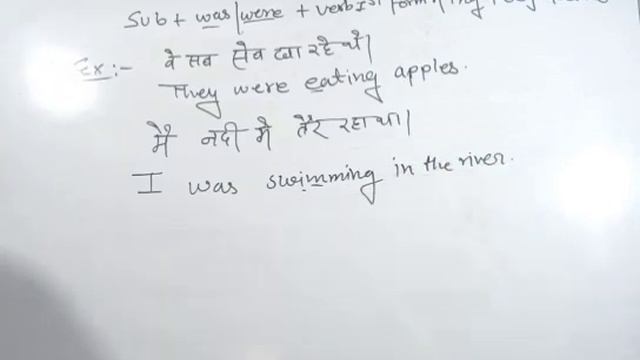 Sub + was/were + verb Ist form + ing +
Ex:- वे सब सेव खा रहे थे।
They were eating apples.
मैं नदी में तैर रहा था।
I was swimming in the river.